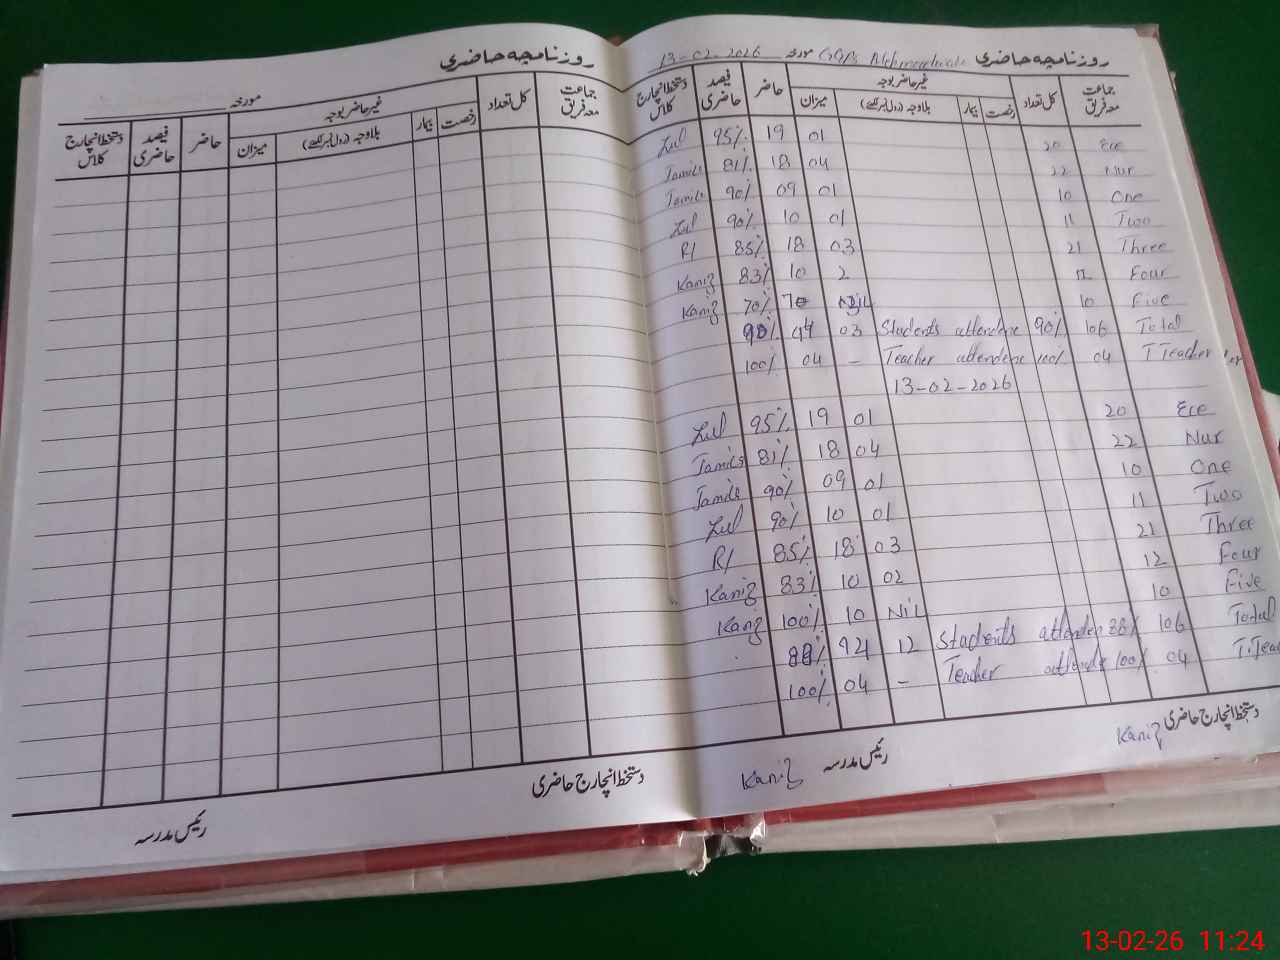 روزنامچہ حاضری
مورخہ
13-02-2026
جماعت معہ فریق
کل تعداد
غیر حاضر بوجہ
رخصت
بیمار
بلاوجہ (رول نمبر لکھے)
میزان
حاضر
فیصد حاضری
دستخط انچارج کلاس
Zul 95% 19 01 20 Ece
Jamils 81% 18 04 22 Nur
Jamils 90% 09 01 10 One
Zul 90% 10 01 11 Two
R/ 85% 18 03 21 Three
Kaniz 83% 10 2 12 Four
Kaniz 70% Nil 10 Five
90% 03 Students attendene 90% 106 Total
100% 04 - Teacher attendene 100% 04 T Teacher
13-02-2026
Zul 95% 19 01 20 Ece
Jamils 81% 18 04 22 Nur
Jamils 90% 09 01 10 One
Zul 90% 10 01 11 Two
R/ 85% 18 03 21 Three
Kaniz 83% 10 02 12 Four
Kaniz 100% 10 NiL 10 Five
88% 94 12 Students attenden 88% 106 Total
100% 04 - Teacher attende 100% 04 T.Tea
دستخط انچارج حاضری
Kaniz
رئیس مدرسہ
Kaniz
روزنامچہ حاضری
مورخہ
جماعت معہ فریق
کل تعداد
غیر حاضر بوجہ
رخصت
بیمار
بلاوجہ (رول نمبر لکھے)
میزان
حاضر
فیصد حاضری
دستخط انچارج کلاس
دستخط انچارج حاضری
رئیس مدرسہ
13-02-26 11:24